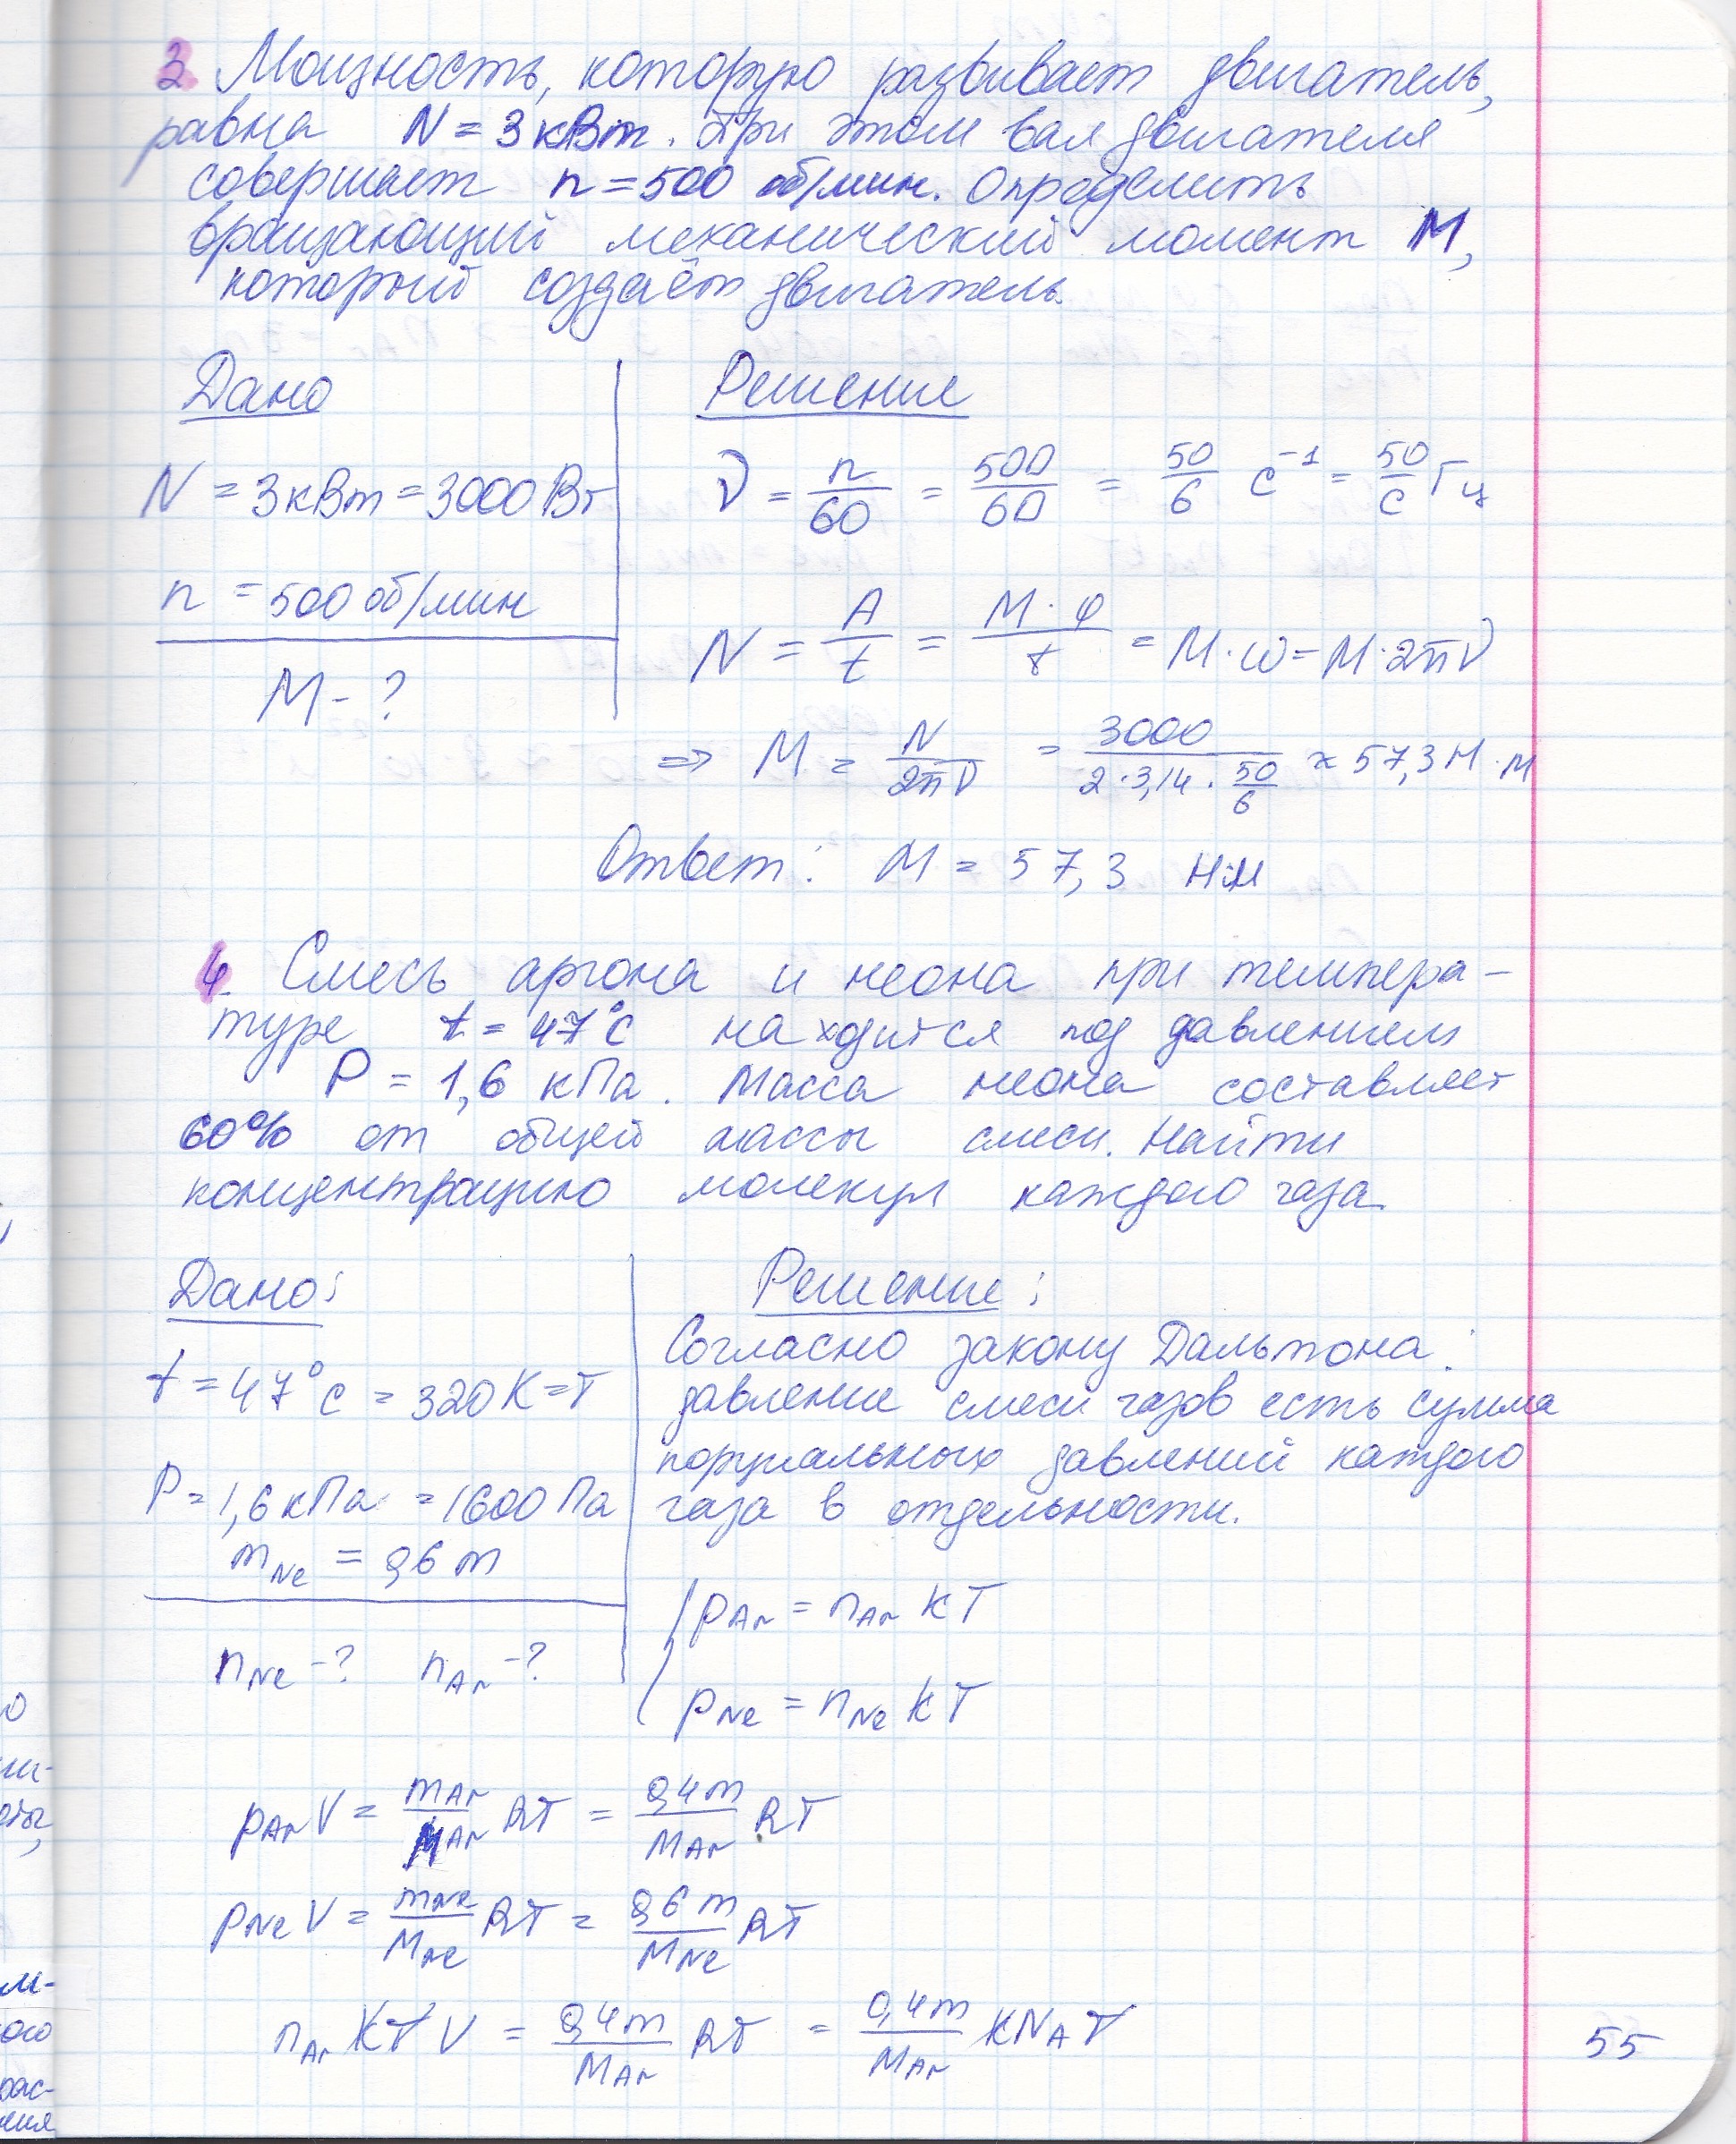 3. Мощность, которую развивает двигатель,
равна N = 3 кВт. При этом вал двигателя
совершает n = 500 об/мин. Определить
вращающий механический момент M,
который создаёт двигатель.
Дано
Решение
N = 3 кВт = 3000 Вт
ν = n/60 = 500/60 = 50/6 с⁻¹ = 50/с Гц
n = 500 об/мин
N = A/t = M·φ/t = M·ω = M·2πν
M - ?
=> M = N/2πν = 3000/(2·3,14·50/6) ≈ 57,3 Н·м
Ответ: M = 57,3 Н·м
4. Смесь аргона и неона при темпера-
туре t = 47°C находится под давлением
P = 1,6 кПа. Масса неона составляет
60% от общей массы смеси. Найти
концентрацию молекул каждого газа.
Дано:
Решение:
Согласно закону Дальтона:
t = 47°C = 320 K = T
давление смеси газов есть сумма
парциальных давлений каждого
P = 1,6 кПа = 1600 Па
газа в отдельности.
mNe = 0,6 m
pAr = nAr kT
nNe - ? nAr - ?
pNe = nNe kT
pAr V = mAr/MAr RT = 0,4m/MAr RT
pNe V = mNe/MNe RT = 0,6m/MNe RT
nAr kT V = 0,4m/MAr RT = 0,4m/MAr kNA T
55